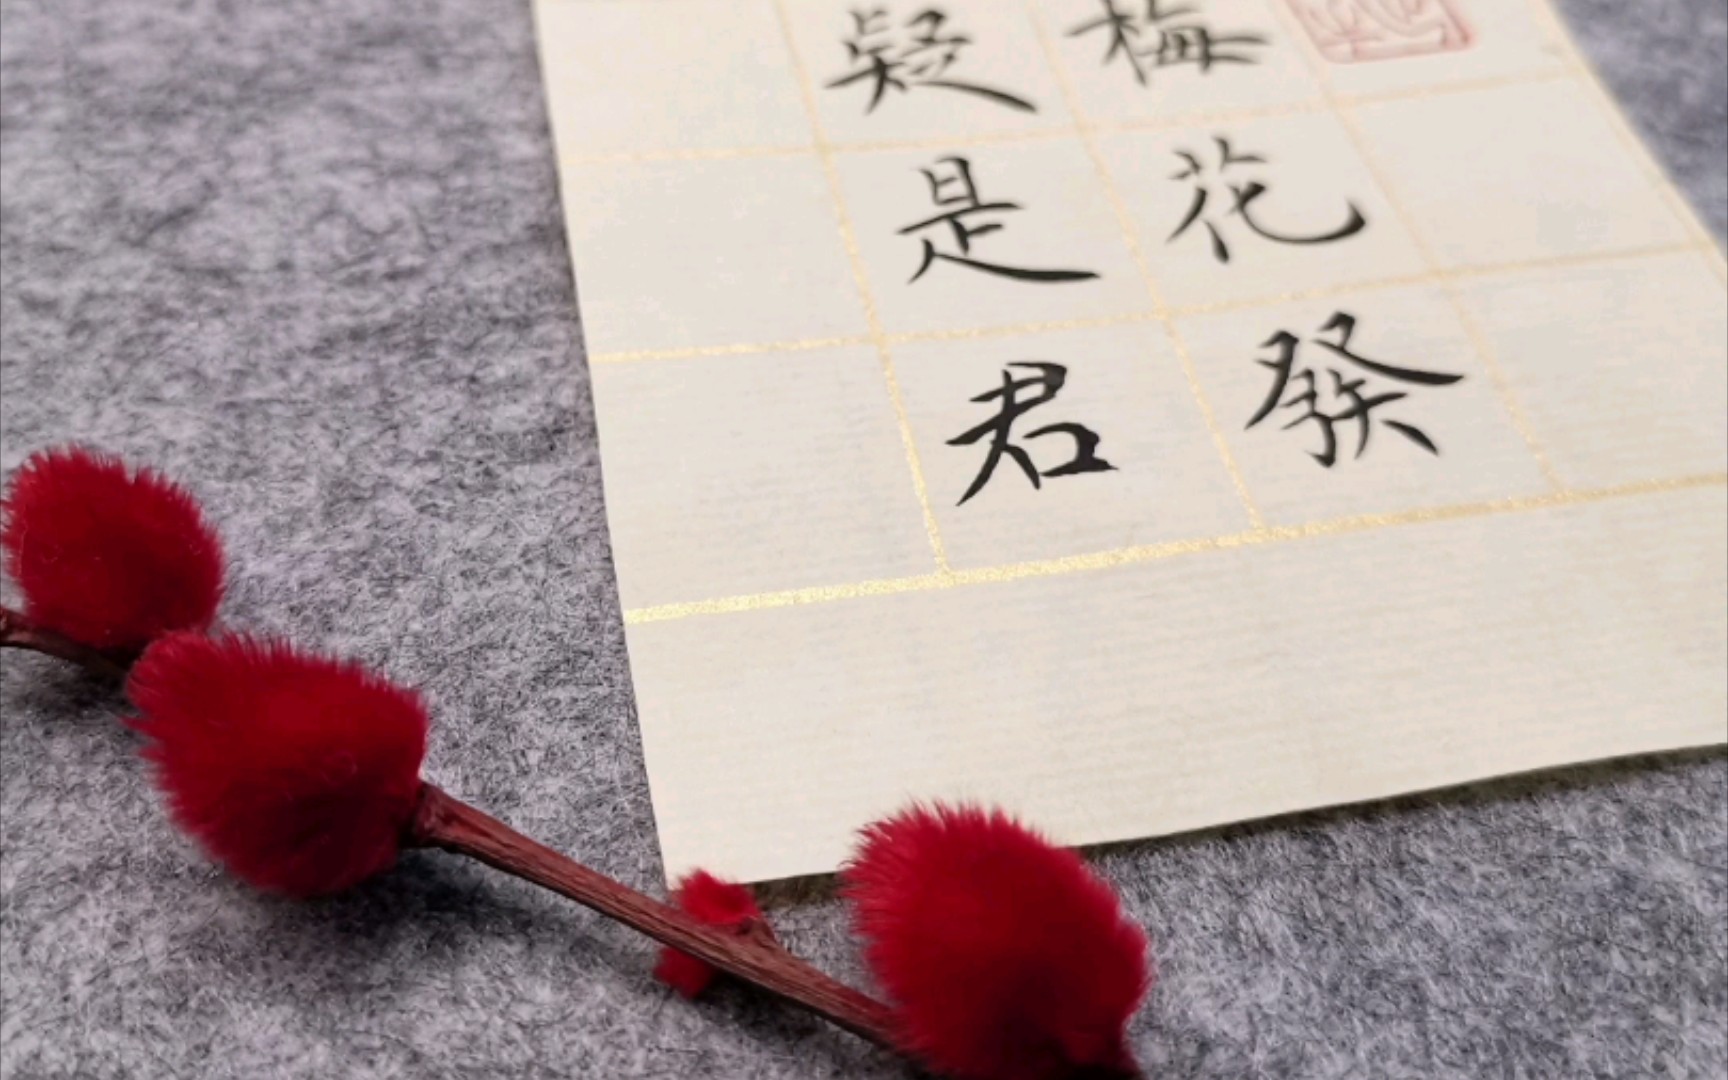 梅花發
疑是君